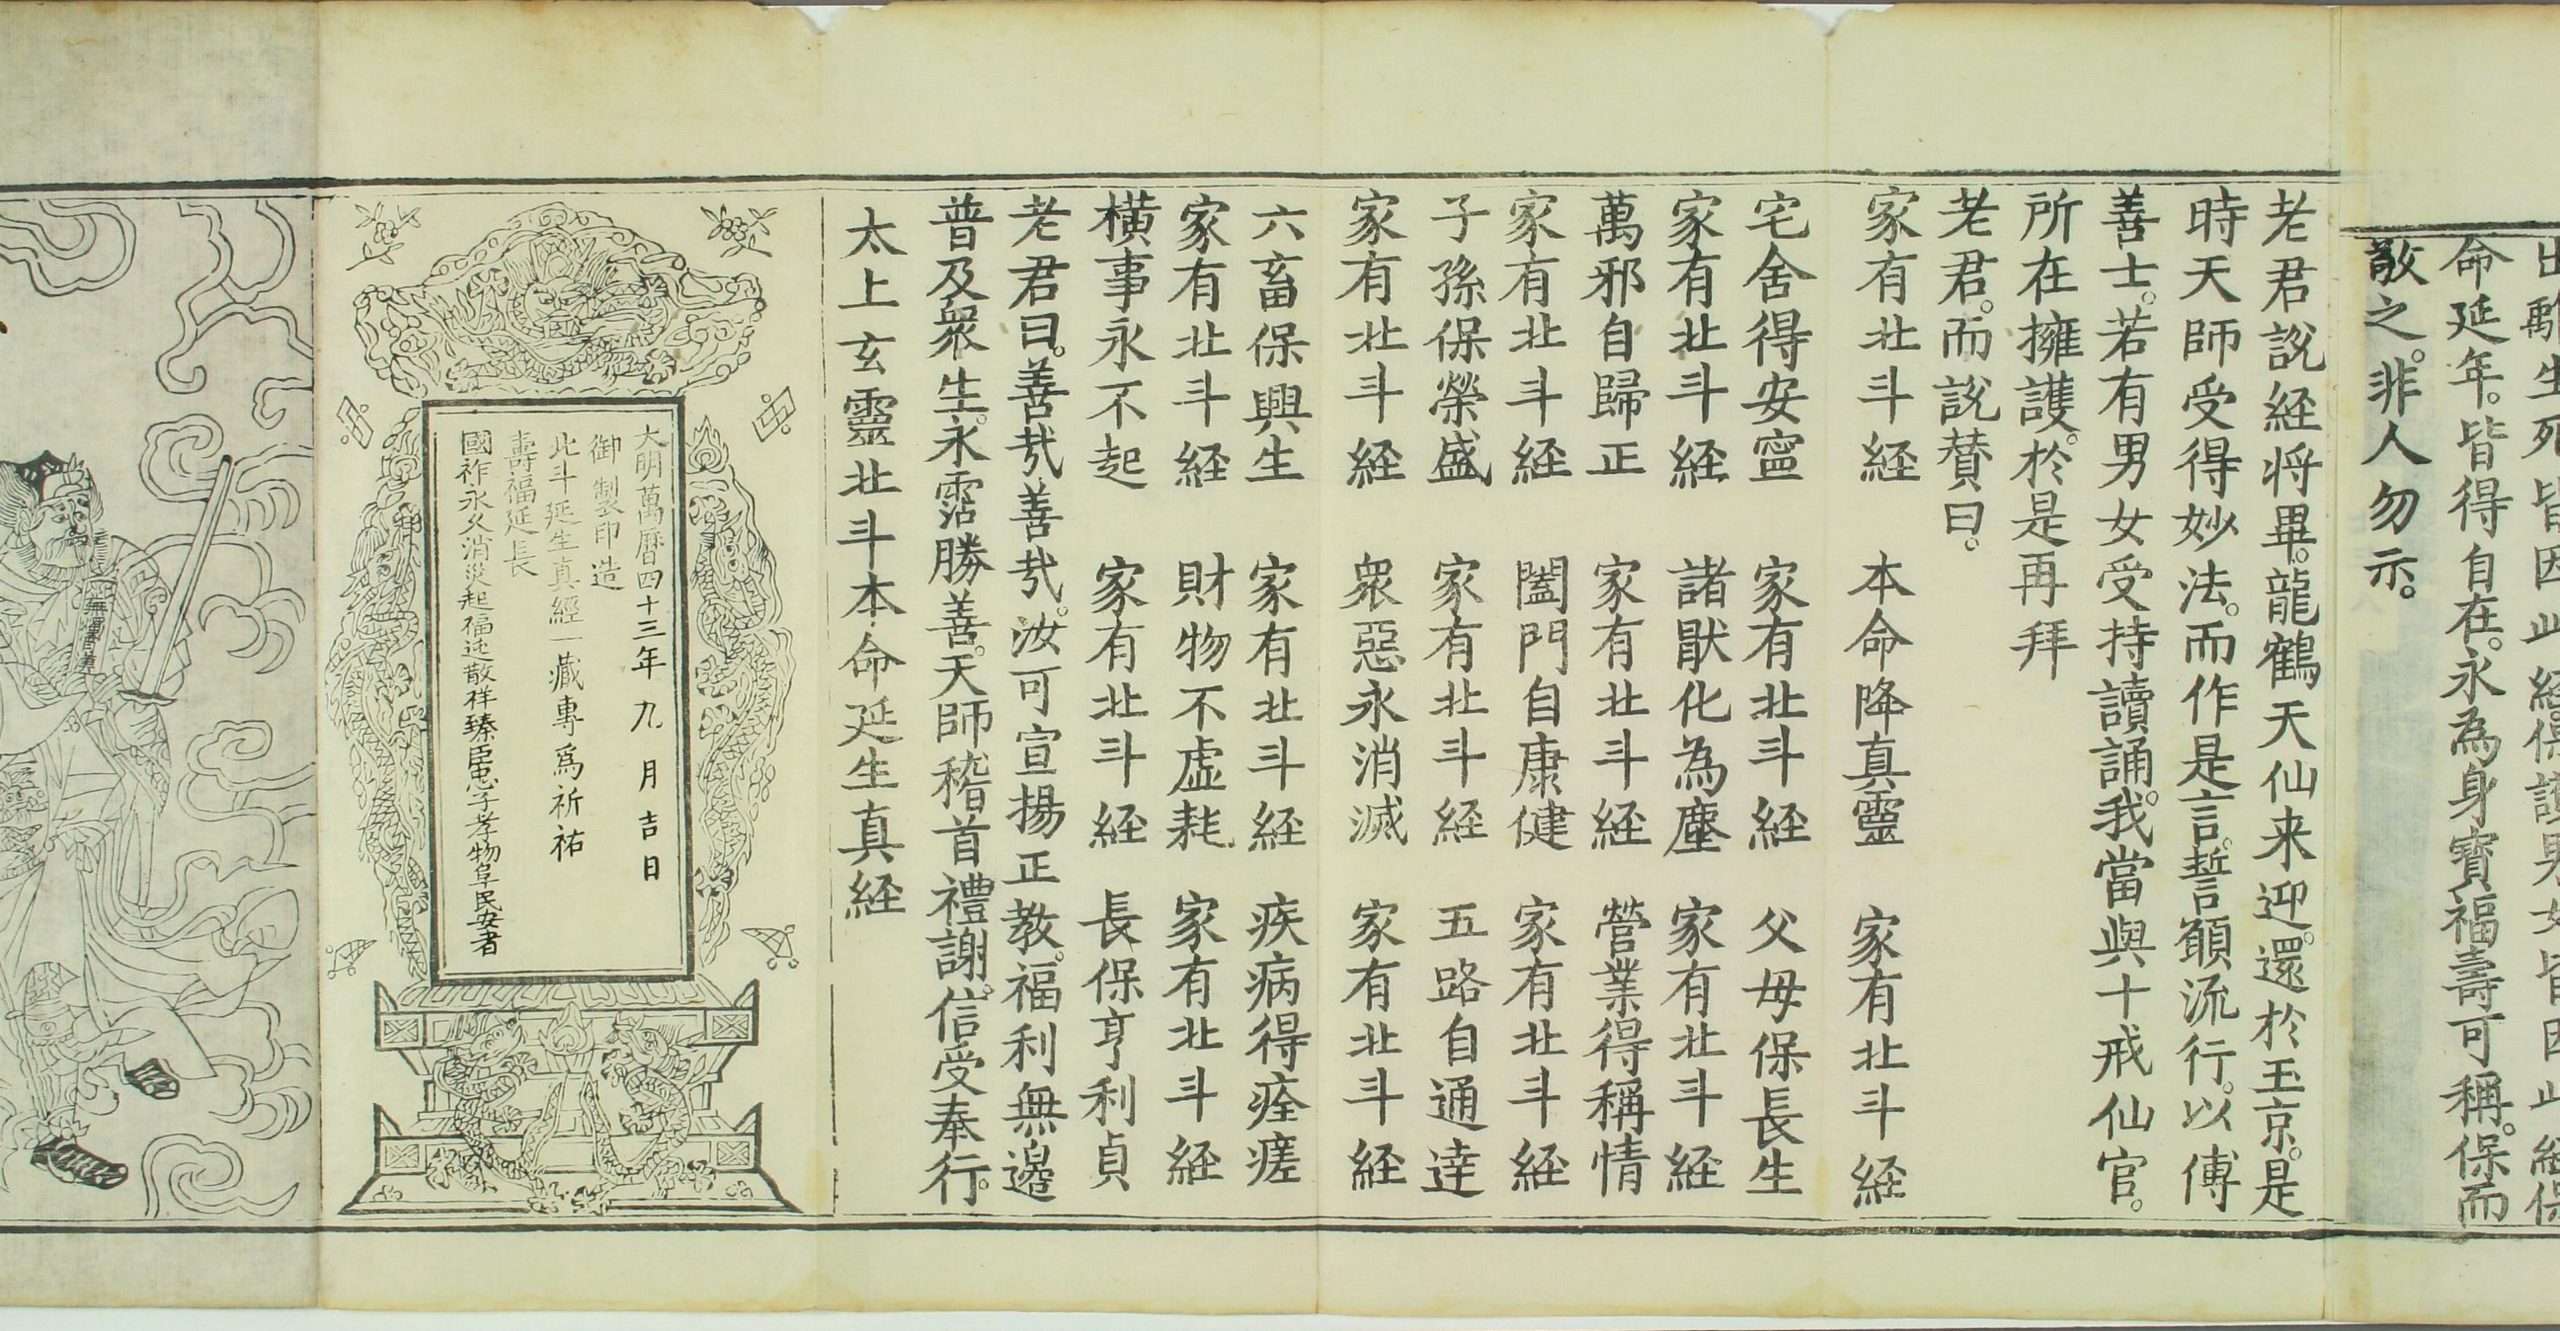 出離生死皆因此經保護男女皆因此經保
命延年。皆得自在。永為身寶福壽可稱。保而
敬之。非人勿示。
老君説経将畢。龍鶴天仙来迎。還於玉京。是
時天師受得妙法。而作是言。誓願流行。以傳
善士。若有男女受持讀誦。我當與十戒仙官。
所在擁護。於是再拜
老君。而説賛曰。
家有北斗経　本命降真靈　家有北斗経
宅舍得安寧　家有北斗経　父母保長生
家有北斗経　諸猒化為塵　家有北斗経
萬邪自歸正　家有北斗経　營業得稱情
家有北斗経　闔門自康健　家有北斗経
子孫保榮盛　家有北斗経　五路自通達
家有北斗経　衆惡永消滅　家有北斗経
六畜保興生　家有北斗経　疾病得痊瘥
家有北斗経　財物不虚耗　家有北斗経
橫事永不起　家有北斗経　長保亨利貞
老君曰。善哉善哉。汝可宣揚正教。福利無邊
普及衆生。永霑勝善。天師稽首禮謝。信受奉行。
太上玄靈北斗本命延生真経
大明萬曆四十三年九月吉日
御製印造
北斗延生真經一藏專為祈祐
壽福延長
國祚永久消災起福迍散祥臻臣忠子孝物阜民安者